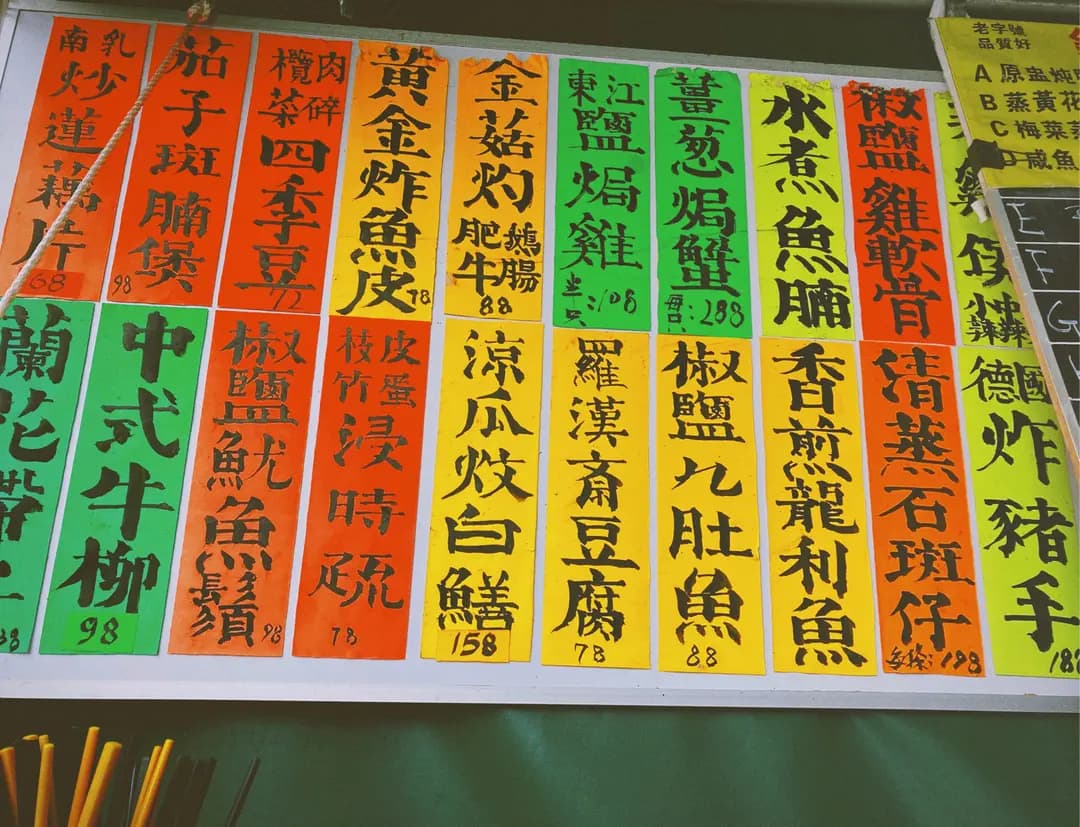 南乳炒蓮藕片 68
茄子斑腩煲 98
欖菜肉碎四季豆 72
黃金炸魚皮 78
金菇灼肥牛鵝腸 88
東江鹽焗雞 半只:108
薑葱焗蟹 :288
水煮魚腩
椒鹽雞軟骨
煲
蘭花
中式牛柳 98
椒鹽魷魚鬚 98
枝竹皮蛋浸時疏 78
涼瓜炆白鱔 158
羅漢斎豆腐 78
椒鹽九肚魚 88
香煎龍利魚
清蒸石斑仔 每條:198
德國炸豬手
老字號
品質好
A 原盅炖
B 蒸黃花
C 梅菜蒸
D 咸魚
E
F
G